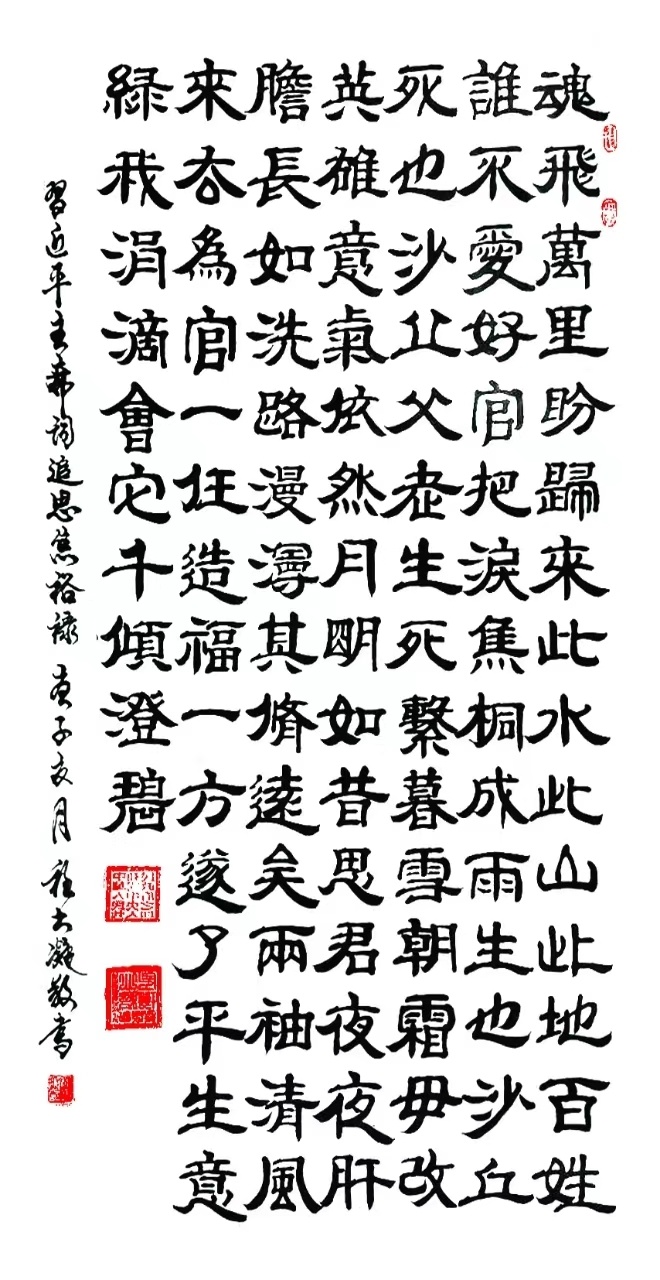 魂飛萬里盼歸來此水此山此地百姓
誰不愛好官把淚焦桐成雨生也沙丘
死也沙丘父老生死繫暮雪朝霜毋改
英雄意氣依然月明如昔思君夜夜肝
膽長如洗路漫漫其脩遠矣兩袖清風
來去為官一任造福一方遂了平生意
綠我涓滴會它千傾澄碧
習近平主席詞追思焦裕祿 庚子夏月 敬書